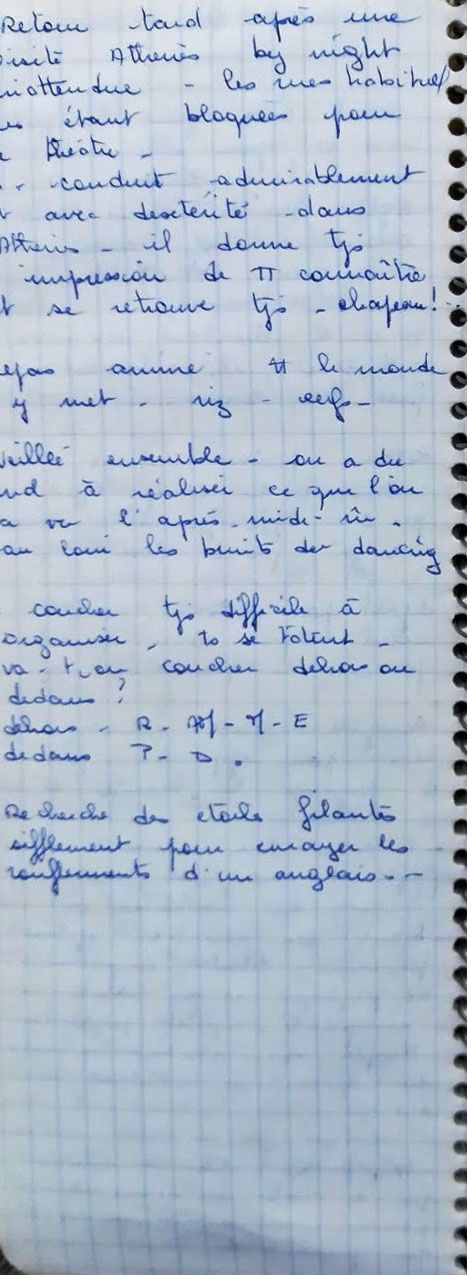 Retour tard après une
visite Athènes by night
inattendue - les rues habituel
es étant bloquées pour
e théâtre -
. - conduit admirablement
t avec dextérité dans
Athènes - il donne tjs
impression de TT connaître
t se retrouve tjs - chapeau!..
epas animé tt le monde
y met - riz - oeufs -
veillée ensemble - on a du
nd à réaliser ce que l'on
a vu l'après-midi -
au loin les bruits du dancing
coucher tjs difficile à
organiser - ts se tâtent -
va-t-on coucher dehors ou
dedans?
dehors - R - M - M - E
dedans P - D .
Recherche des étoiles filantes
sifflement pour enrayer les
ronflements d'un anglais - -